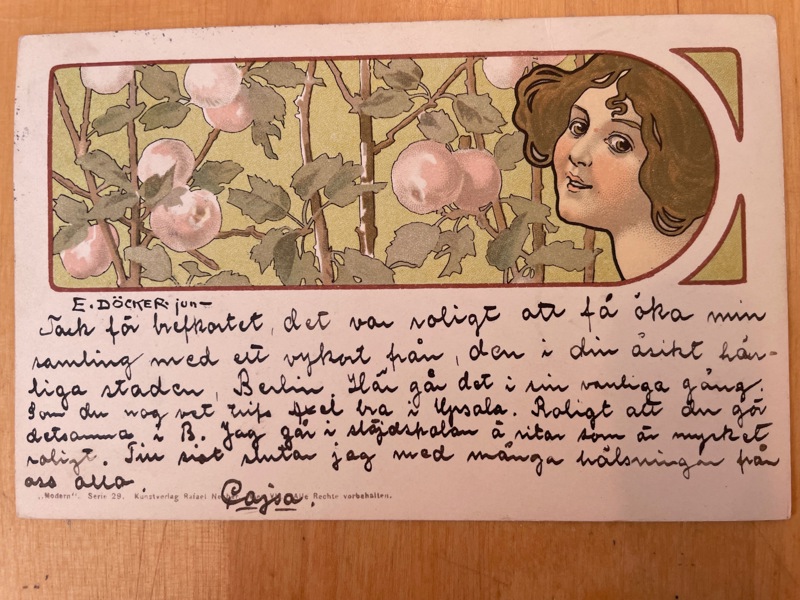 E. DÖCKER. jun-
Tack för brefkortet, det var roligt att få öka min
samling med ett vykort från, den i din åsikt här-
liga staden, Berlin. Här går det i sin vanliga gång.
Som du nog vet trifs Axel bra i Upsala. Roligt att du gör
detsamma i B. Jag går i slöjdskolan å ritar som är mycket
roligt. Till sist slutar jag med många hälsningar från
oss alla.
Cajsa.
„Modern". Serie 29. Kunstverlag Rafael Alle Rechte vorbehalten.